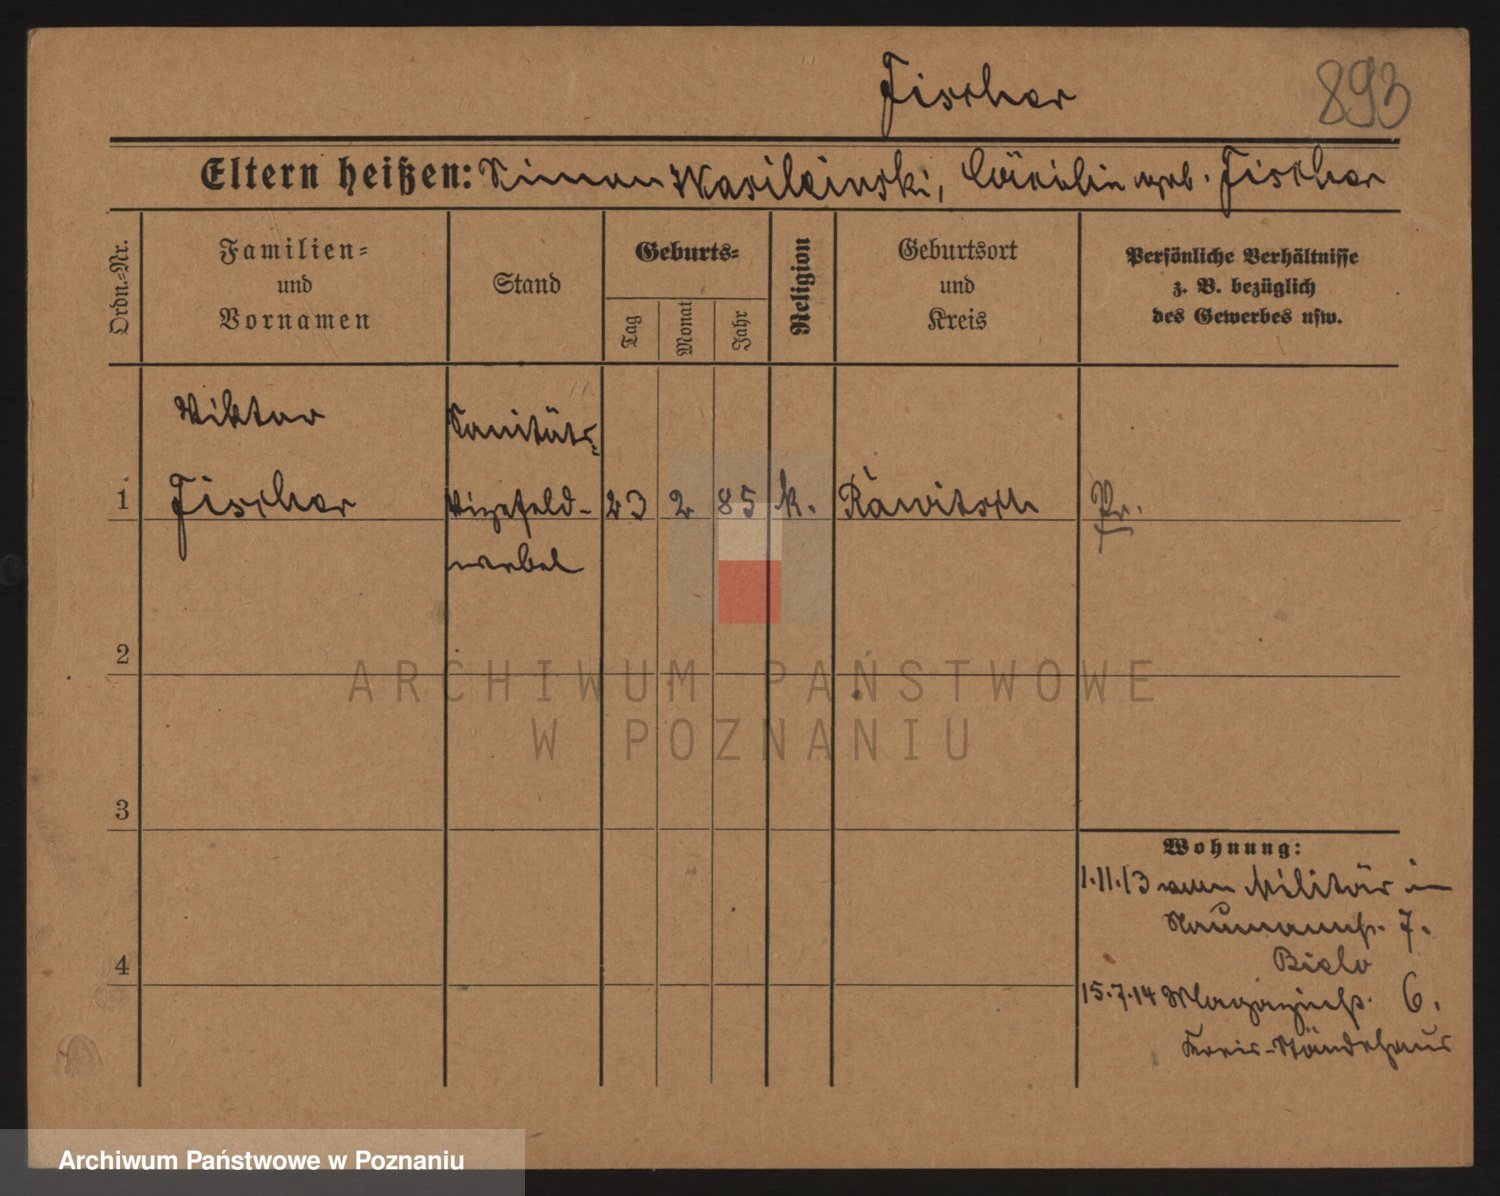 Fischer
893
Eltern heißen: Simon Wasileinski, Cäcilie geb. Fischer
Ordn.-Nr.
Familien-
und
Vornamen
Stand
Geburts-
Tag
Monat
Jahr
Religion
Geburtsort
und
Kreis
Persönliche Verhältnisse
z. B. bezüglich
des Gewerbes usw.
Viktor
Sanitäts-
1
Fischer
Vizefeld-
23
2
85
k.
Rawitsch
Pr.
webel
2
ARCHIWUM PAŃSTWOWE
W POZNANIU
3
Wohnung:
1.11.13 vom Militär in
Naumannstr. 7.
4
15.7.14 Magazinstr. 6.
Kreis-Ständehaus
Archiwum Państwowe w Poznaniu